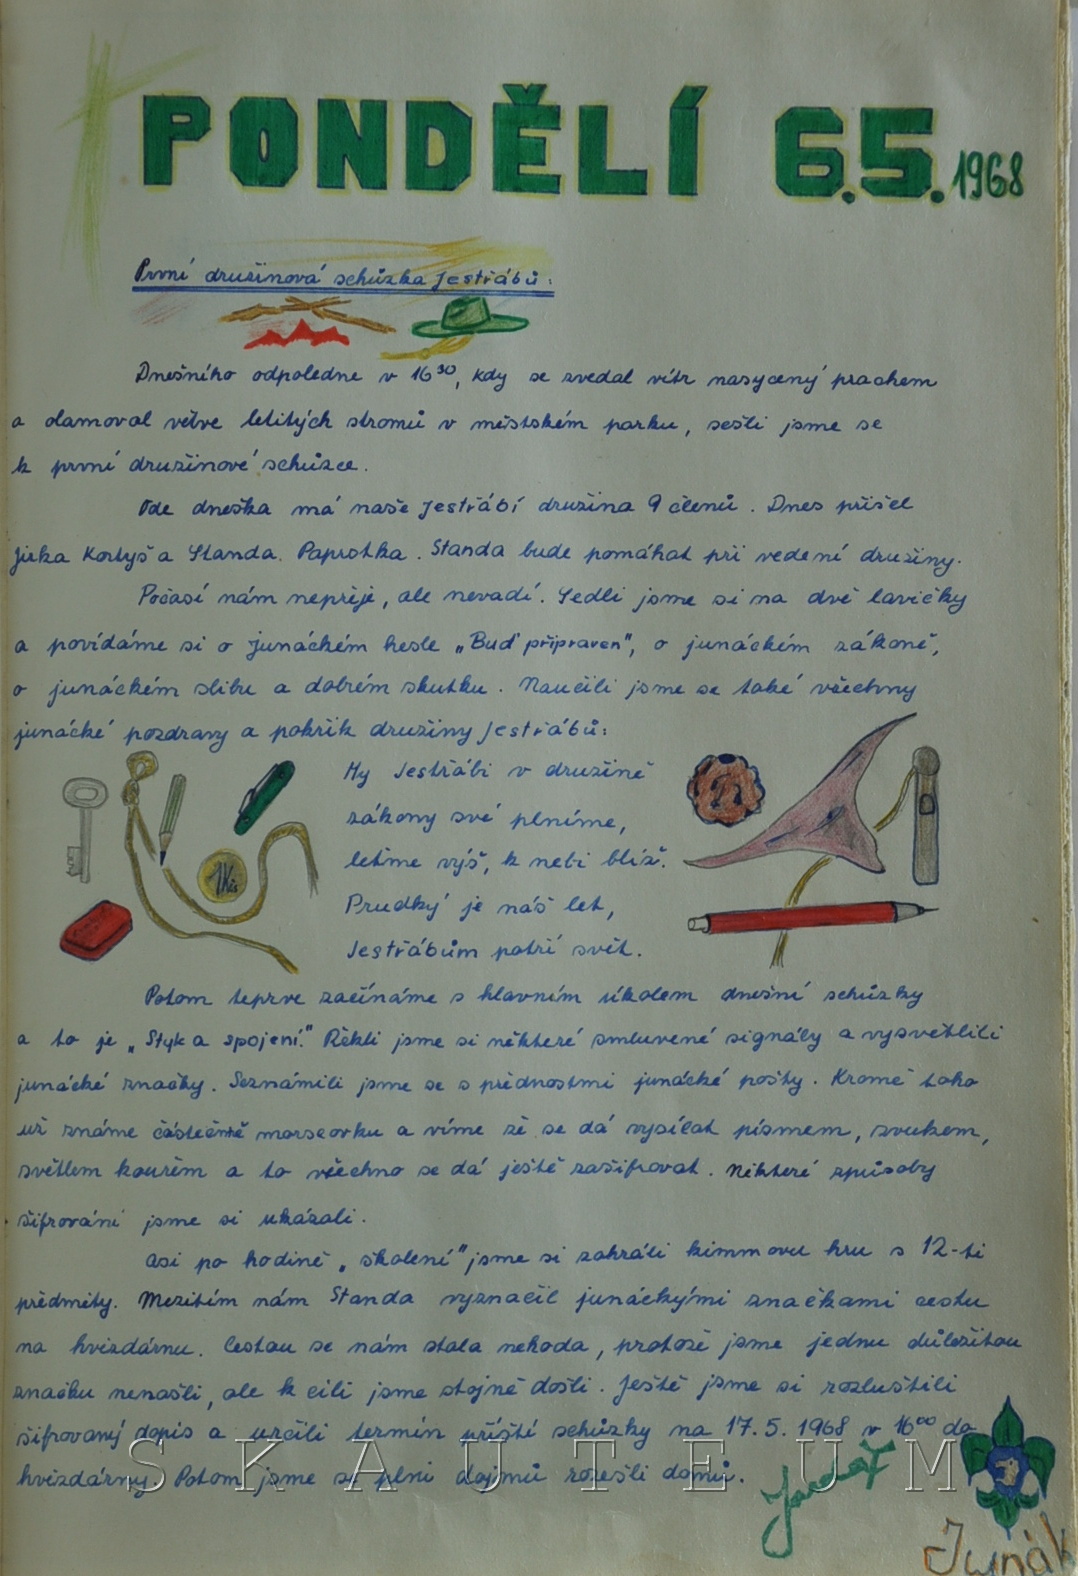 PONDĚLÍ 6.5. 1968
První družinová schůzka Jestřábů:
Dnešního odpoledne v 16³⁰, kdy se zvedal vítr nasycený prachem
a olamoval větve letitých stromů v městském parku, sešli jsme se
k první družinové schůzce.
Ode dneška má naše Jestřábí družina 9 členů. Dnes přišel
Jirka Kortyš a Standa Paprotka. Standa bude pomáhat při vedení družiny.
Počasí nám nepřeje, ale nevadí. Sedli jsme si na dvě lavičky
a povídáme si o junáckém hesle „Buď připraven", o junáckém zákoně,
o junáckém slibu a dobrém skutku. Naučili jsme se také všechny
junácké pozdravy a pokřik družiny Jestřábů:
My Jestřábi v družině
zákony své plníme,
leťme výš, k nebi blíž.
Prudký je náš let,
Jestřábům patří svět.
1 Kčs
Potom teprve začínáme s hlavním úkolem dnešní schůzky
a to je „Styk a spojení." Řekli jsme si některé smluvené signály a vysvětlili
junácké značky. Seznámili jsme se s přednostmi junácké pošty. Kromě toho
už známe částečně morseovku a víme že se dá vysílat písmem, zvukem,
světlem kouřem a to všechno se dá ještě zašifrovat. Některé způsoby
šifrování jsme si ukázali.
Asi po hodině „školení" jsme si zahráli kimmovu hru s 12-ti
předměty. Mezitím nám Standa vyznačil junáckými značkami cestu
na hvězdárnu. Cestou se nám stala nehoda, protože jsme jednu důležitou
značku nenašli, ale k cíli jsme stejně došli. Ještě jsme si rozluštili
šifrovaný dopis a určili termín příští schůzky na 17.5.1968 v 16⁰⁰ do
hvězdárny. Potom jsme se plni dojmů rozešli domů.
Junák
SKAUTEUM